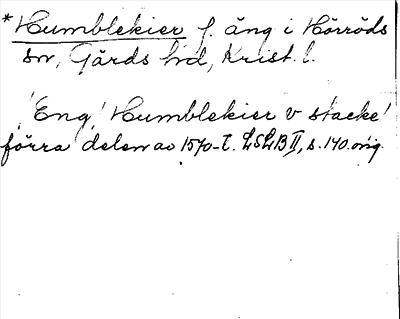 *Humblekier f. äng i Hörröds
sn, Gärds hd, Krist. l.
'Eng' Humblekier v stacke'
förra delen av 1570-t. LSLB II, s. 140. orig.